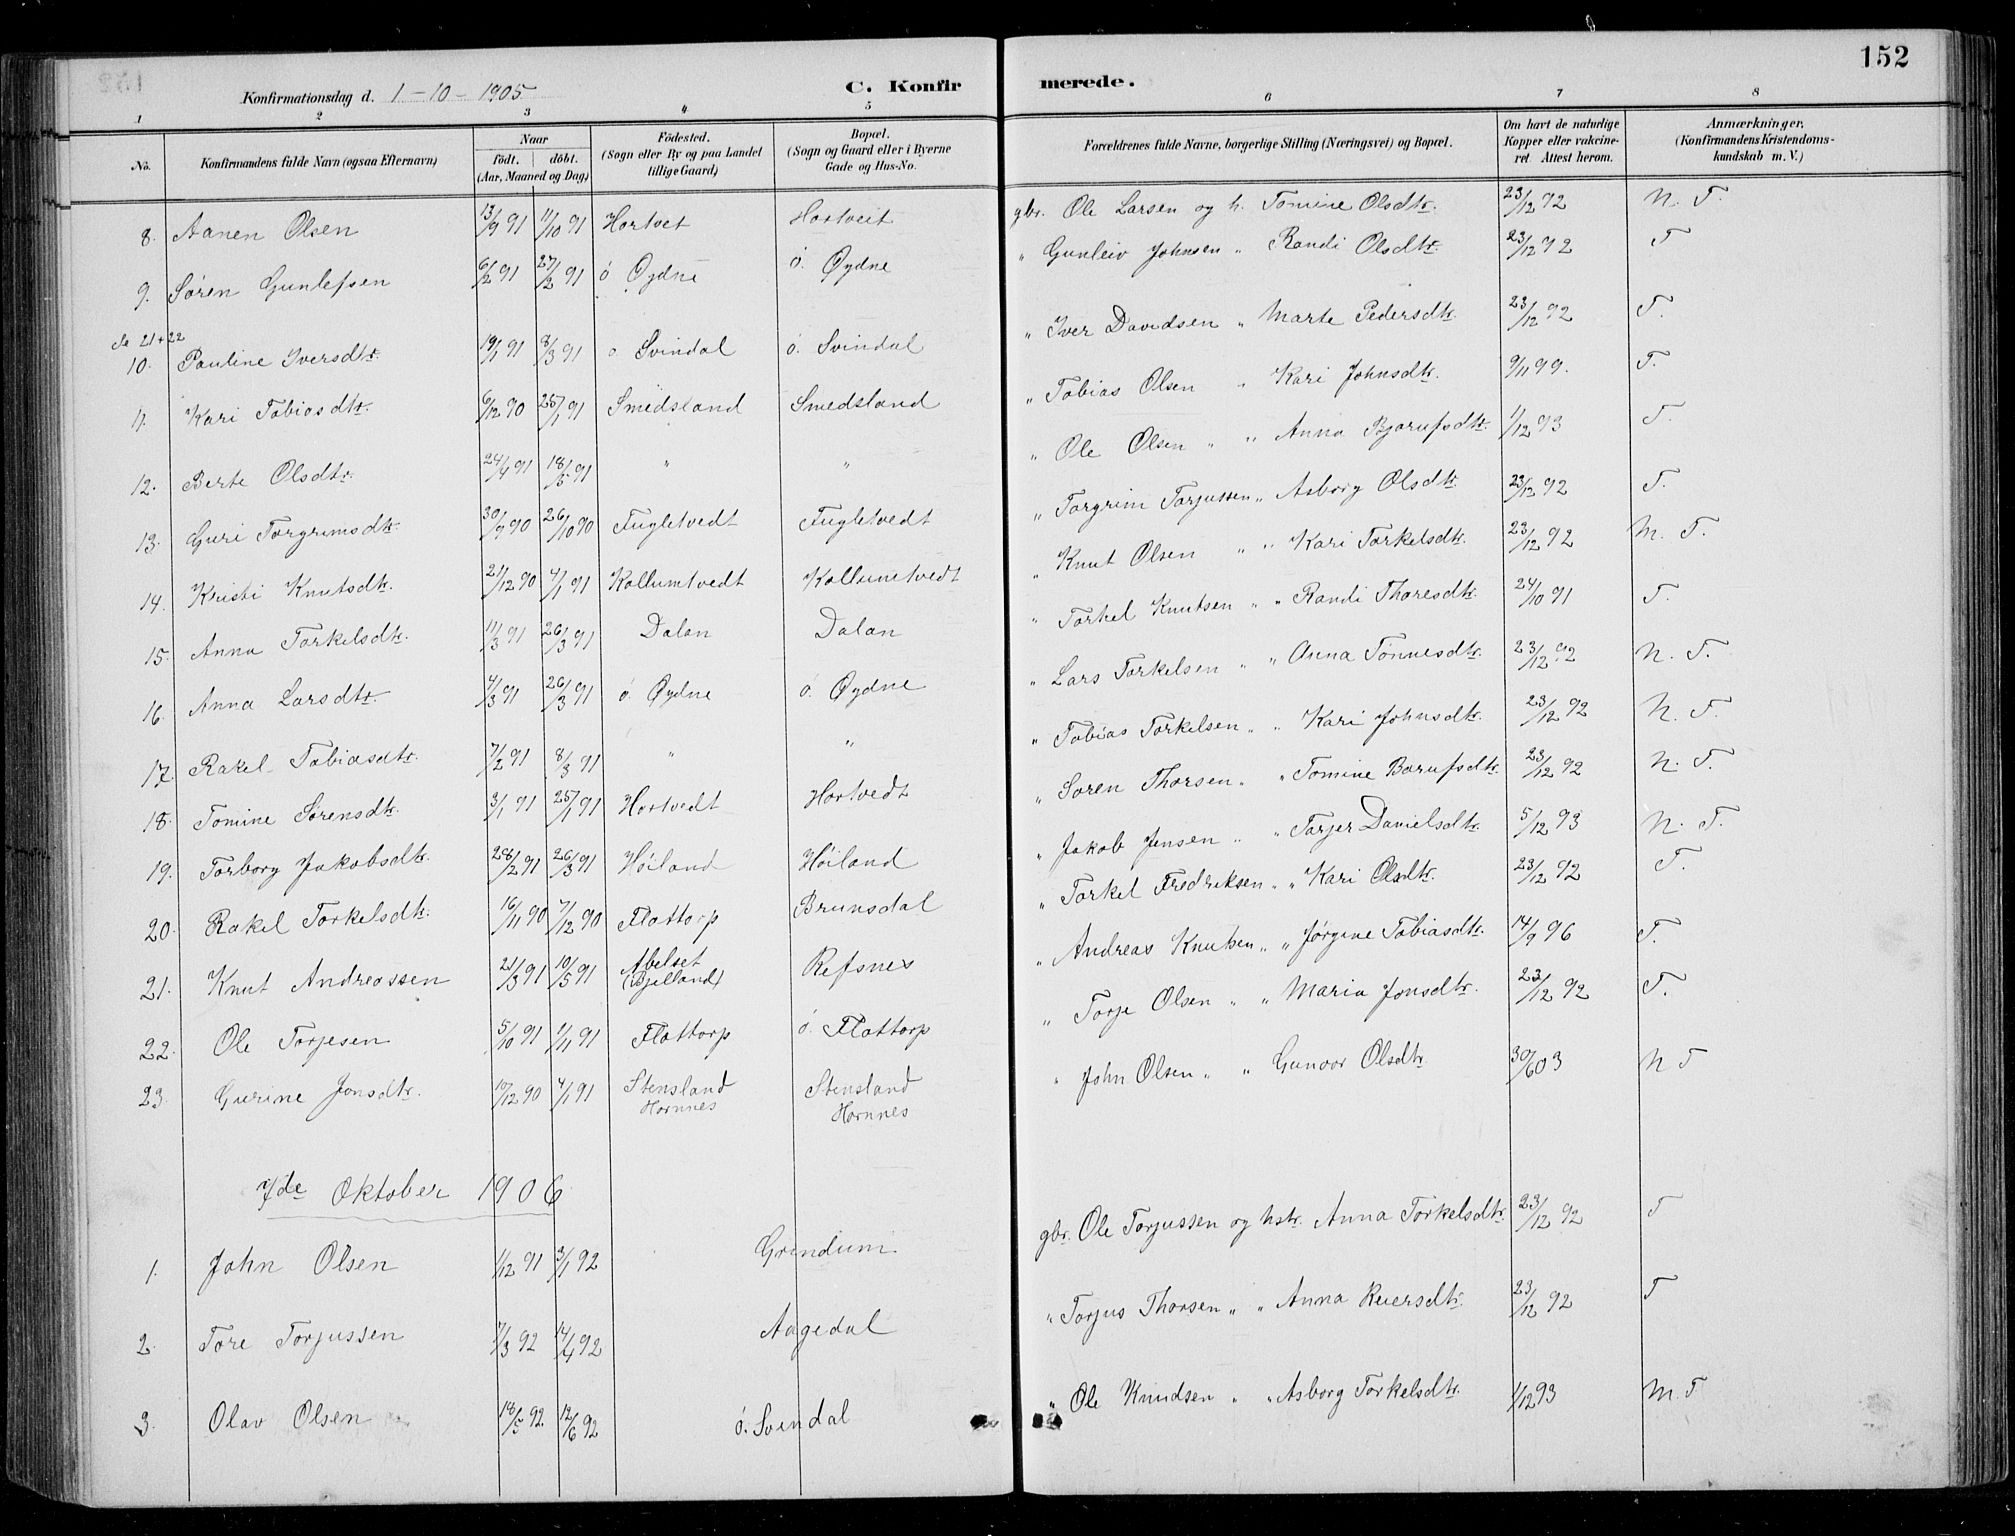 152
Konfirmationsdag d. 1-10-1905 C. Konfirmerede.
1 2 3 4 5 6 7 8
No. Konfirmandens fulde Navn (ogsaa Efternavn) Naar födt. döbt. (Aar, Maaned og Dag) Födested. (Sogn eller By og paa Landet tillige Gaard) Bopæl. (Sogn og Gaard eller i Byerne Gade og Hus-No. Forældrenes fulde Navne, borgerlige Stilling (Næringsvei) og Bopæl. Om havt de naturlige Kopper eller vakcineret Attest herom. Anmærkninger, (Konfirmandens Kristendomskundskab m. V.)
8. Aanen Olsen 13/9 91 11/10 91 Hortvet Hortveit gbr. Ole Larsen og h. Tomine Olsdtr. 23/12 92 N. T.
9. Søren Gunlefsen 6/2 91 27/2 91 ö Øydne ö. Øydne " Gunleiv Johnsen " Randi Olsdtr 23/12 92 T
Se 21+22
10. Pauline Iversdtr. 19/1 91 8/3 91 ö. Svindal ö. Svindal " Iver Davidsen " Marte Pedersdtr. 23/12 92 T.
11. Kari Tobiasdtr. 6/12 90 25/1 91 Smedsland Smedsland " Tobias Olsen " Kari Johnsdtr. 9/11 99. T.
12. Berte Olsdtr. 24/4 91 18/5 91 " " " Ole Olsen " " Anna Bjorufsdtr. 1/12 93 T.
13. Guri Torgrimsdtr. 30/9 90 26/10 90 Fugletvedt Fugletvedt " Torgrim Torjussen " Asborg Olsdtr 23/12 92 T.
14. Kristi Knutsdtr. 21/12 90 4/1 91 Kollumtvedt Kollumtvedt " Knut Olsen " " Kari Torkelsdtr. 23/12 92 M. T.
15. Anna Torkelsdtr. 11/3 91 26/3 91 Dalan Dalan " Torkel Knutsen " " Randi Thoresdtr. 24/10 91 T.
16. Anna Larsdtr. 4/3 91 26/3 91 ö. Øydne ö. Øydne " Lars Torkelsen " " Anna Tönnesdtr. 23/12 92 N. T.
17. Rakel Tobiasdtr. 7/2 91 8/3 91 " " " Tobias Torkelsen " " Kari Johnsdtr. 23/12 92 N. T.
18. Tomine Sørensdtr. 3/1 91 25/1 91 Hortvedt Hortvedt " Soren Thorsen " " Tomine Borufsdtr. 23/12 92 N. T.
19. Torborg Jakobsdtr. 28/2 91 26/3 91 Höiland Höiland " Jakob Jensen " " Torjer Danielsdtr. 5/12 93 N. T.
20. Rakel Torkelsdtr. 16/11 90 7/12 90 Flottorp Brunsdal " Torkel Fredriksen " " Kari Olsdtr. 23/12 92 T.
21. Knut Andreassen 21/3 91 10/5 91 Abelset (Bjelland) Refsnes " Andreas Knutsen " " Jørgine Tobiasdtr. 14/9 96 T.
22. Ole Torjesen 5/10 91 1/11 91 Flottorp ö. Flottorp " Torje Olsen " " Maria Jonsdtr. 23/12 92 T.
23. Gurine Jonsdtr. 10/12 90 4/1 91 Stensland Hornnes Stensland Hornnes " John Olsen " " Gunvor Olsdtr. 30/6 03 N T
7de Oktober 1906
1. John Olsen 1/12 91 3/1 92 Grindum gbr. Ole Torjussen og hstr. Anna Torkelsdtr. 23/12 92 T
2. Tore Torjussen 7/3 92 14/4 92 Aagedal " Torjus Thorsen " " Anna Reiersdtr. 23/12 92 T
3. Olav Olsen 18/5 92 12/6 92 ö. Svindal " Ole Knudsen " " Asborg Torkelsdtr. 1/12 93 M. T